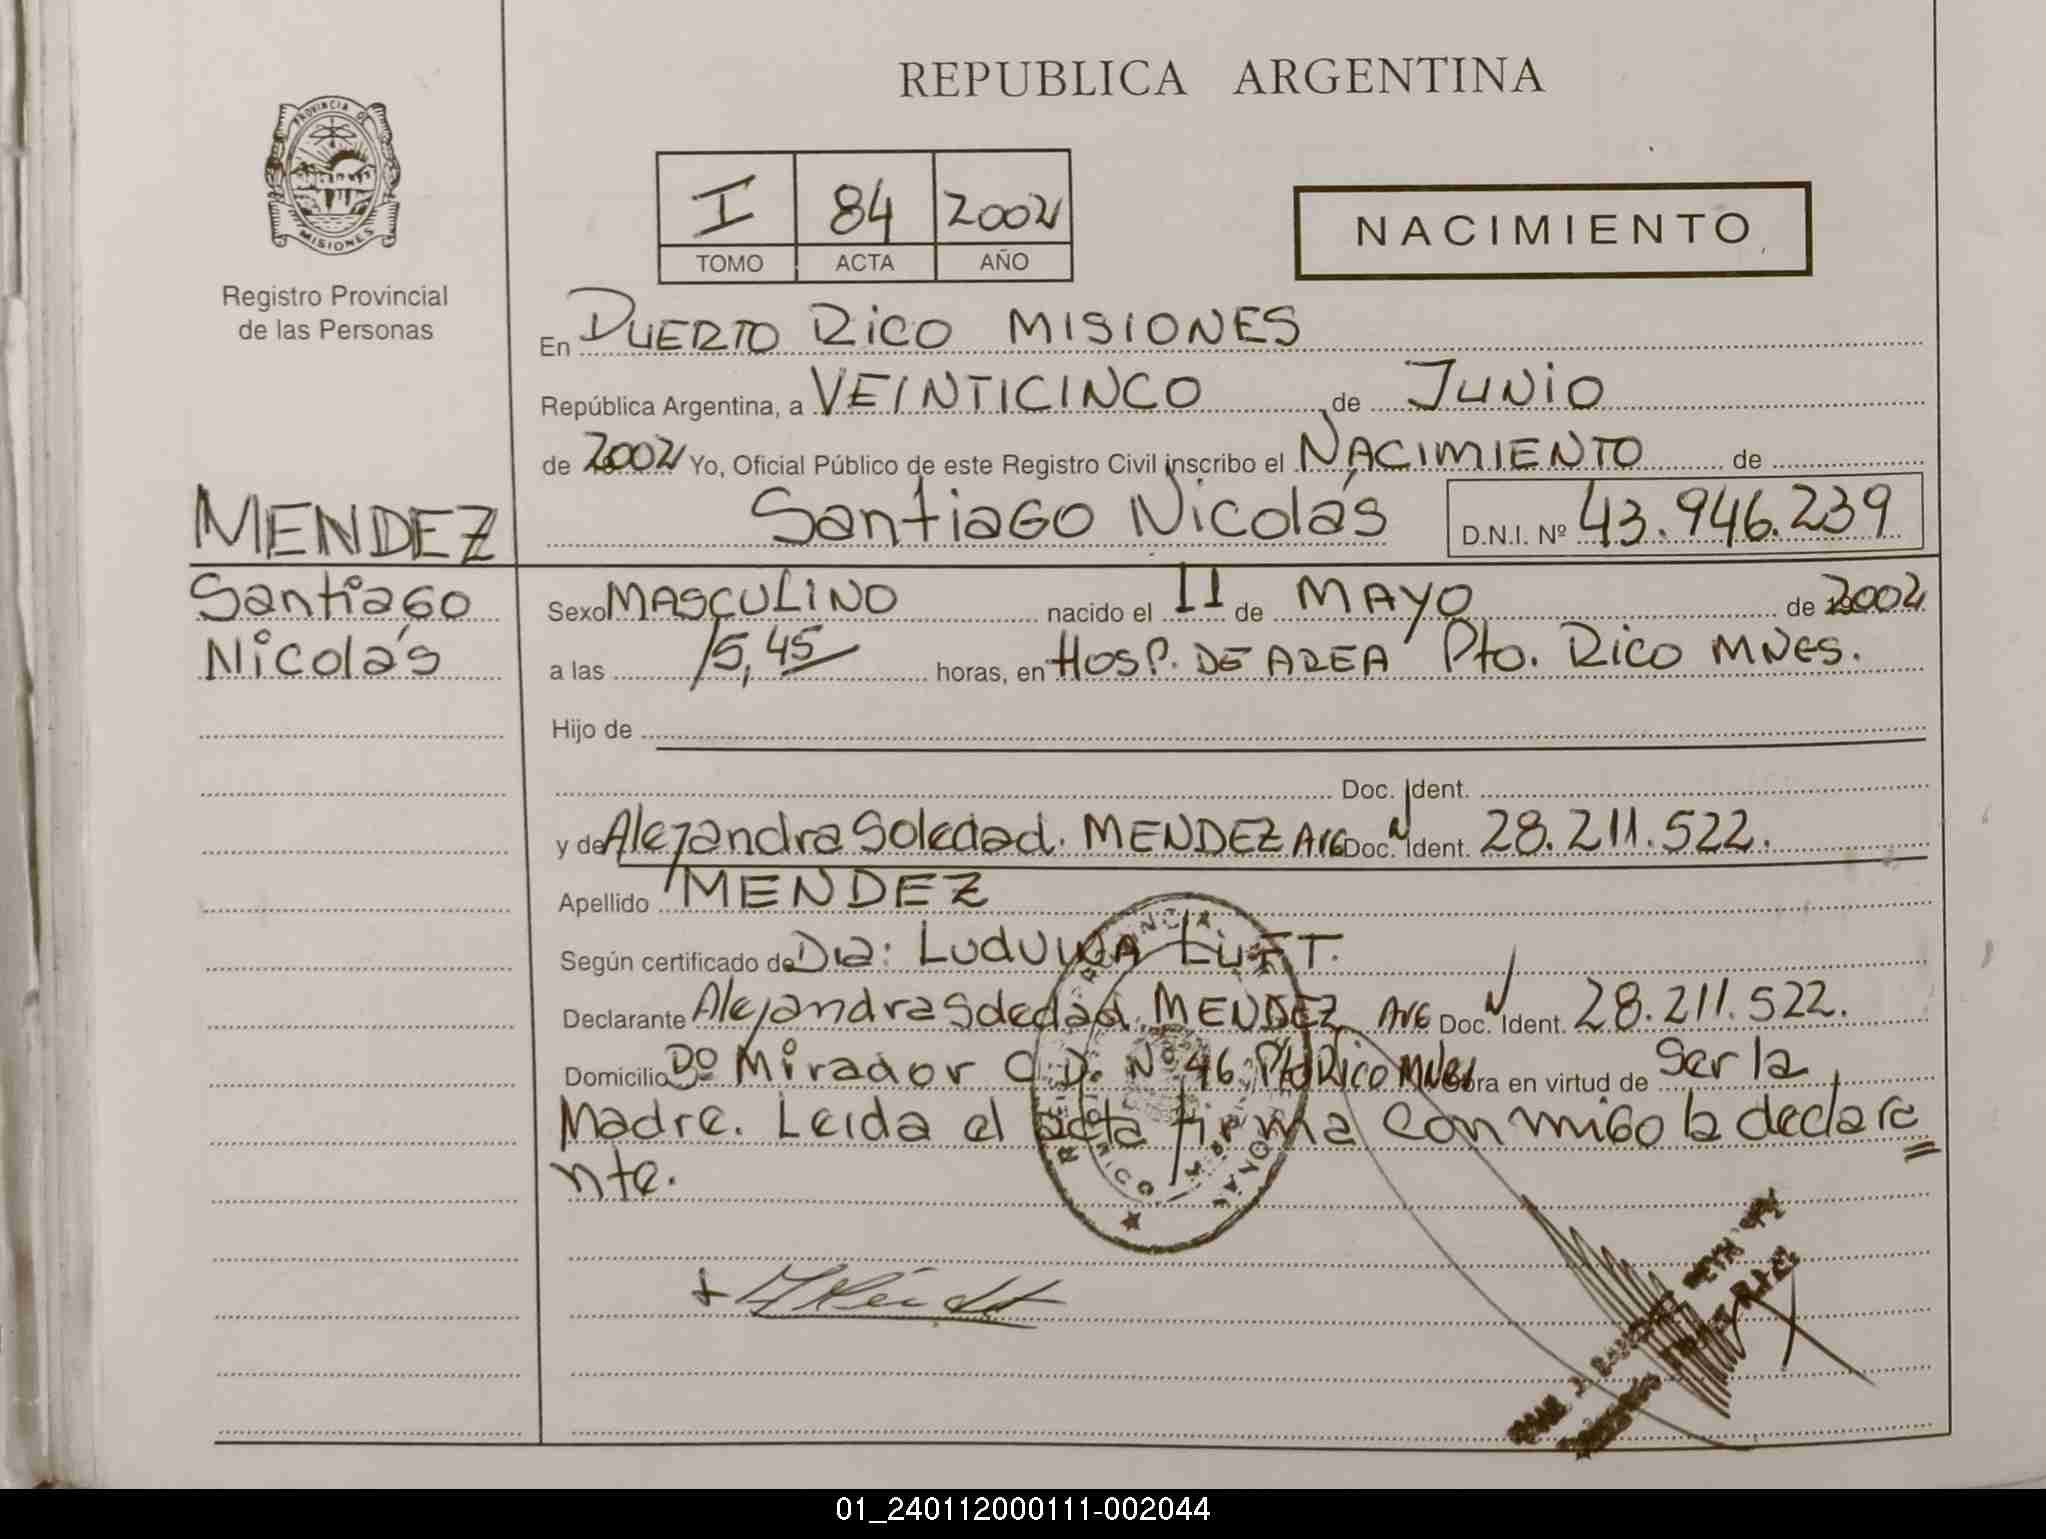 REPUBLICA ARGENTINA
PROVINCIA DE
MISIONES
Registro Provincial
de las Personas
I 84 2002
TOMO ACTA AÑO
NACIMIENTO
En PUERTO RICO MISIONES
República Argentina, a VEINTICINCO de JUNIO
de 2002 Yo, Oficial Público de este Registro Civil inscribo el NACIMIENTO de
MENDEZ
Santiago Nicolás D.N.I. Nº 43.946.239
Santiago
Nicolás
Sexo MASCULINO nacido el 11 de MAYO de 2002
a las 15,45 horas, en HOSP. DE AREA Pto. Rico MNES.
Hijo de
Doc. Ident.
y de Alejandra Soledad. MENDEZ ARG Doc. Ident. 28.211.522.
Apellido MENDEZ
Según certificado de Dra: LUDUWA LUFT.
Declarante Alejandra Soledad MENDEZ ARG Doc. Ident. 28.211.522.
Domicilio Bº Mirador C.D. Nº 46 Pto Rico MNES obra en virtud de ser la
Madre. Leida el acta firma conmigo la declara
nte.
01_240112000111-002044